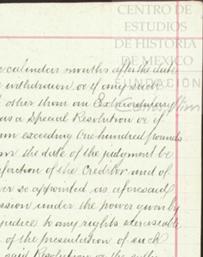 CENTRO DE
ESTUDIOS
DE HISTORIA
DE MEXICO
FUNDACION
calendar months after the date
withdrawal or if any such
other than an Extraordinary
as a Special Resolution or if
exceeding One hundred pounds
the date of the judgment be
faction of the Creditor and if
ver so appointed as aforesaid
ession under the power given by
judice to any rights exercisable
of the presentation of such
said Resolution or the